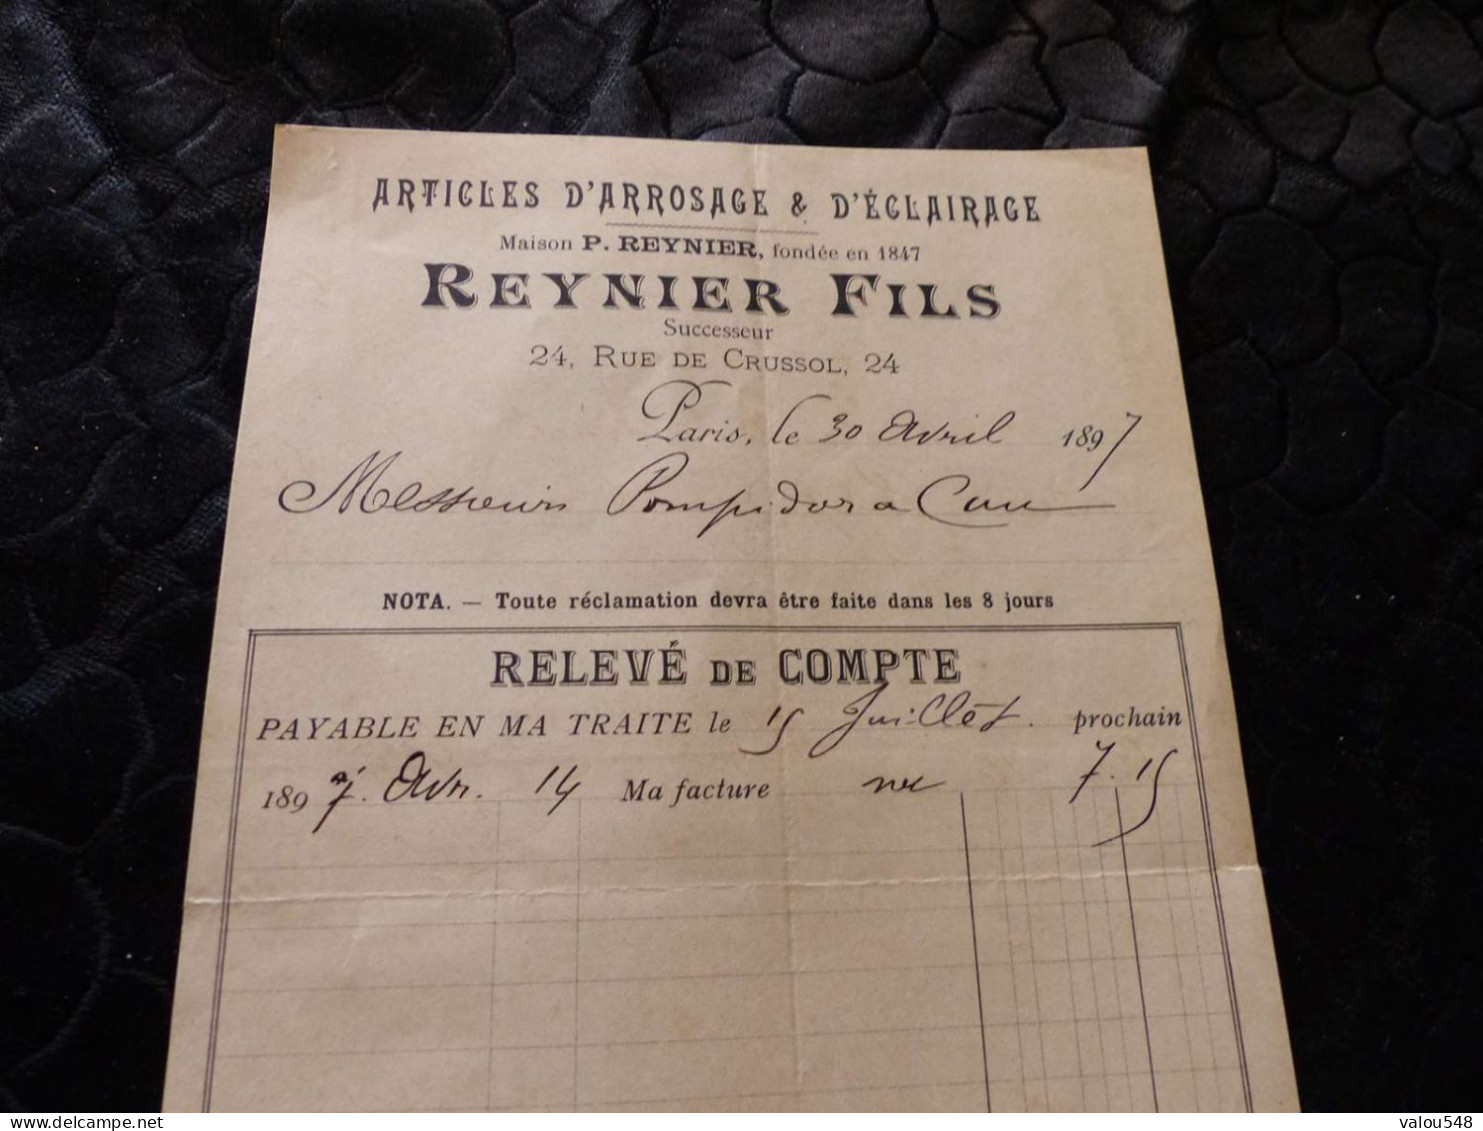 ARTICLES D'ARROSAGE & D'ÉCLAIRAGE
Maison P. REYNIER, fondée en 1847
REYNIER FILS
Successeur
24, RUE DE CRUSSOL, 24
Paris, le 30 Avril 1897
Messieurs Pompidor a
NOTA. — Toute réclamation devra être faite dans les 8 jours
RELEVÉ DE COMPTE
PAYABLE EN MA TRAITE le 15 Juillet. prochain
1897. Avr. 14 Ma facture 7.15
delcampe.net
valou548